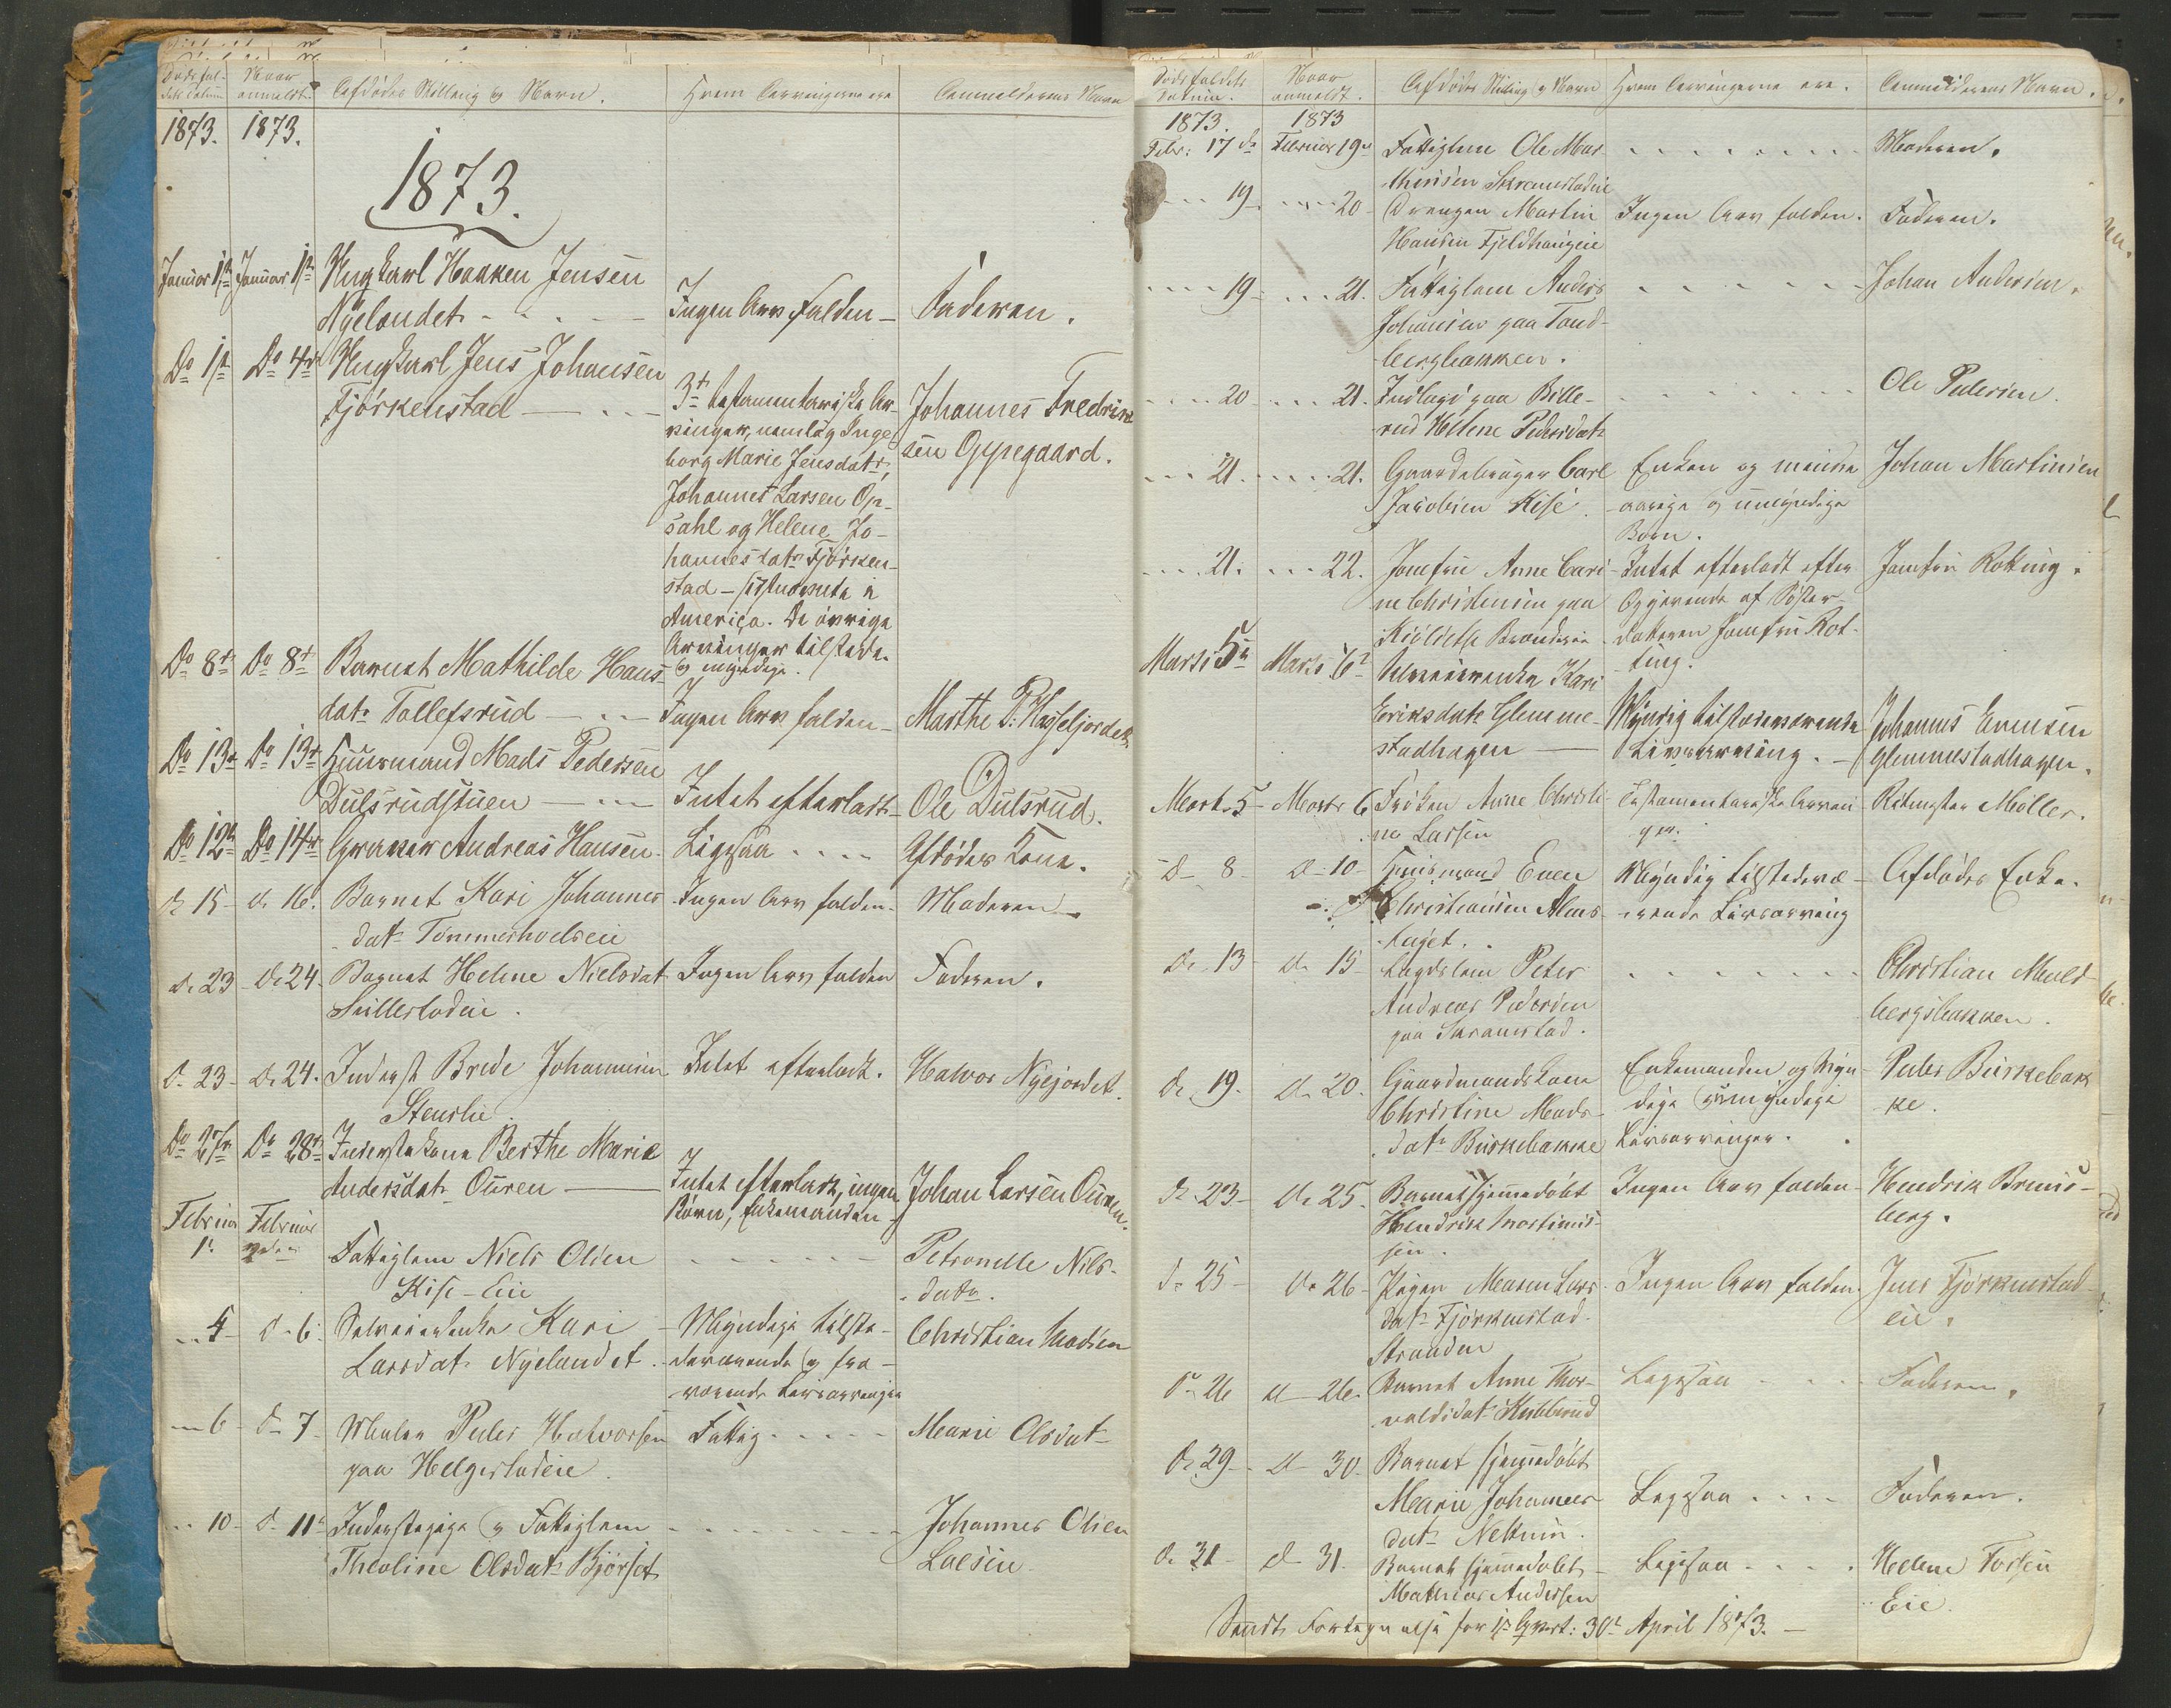 Dødsfal-
dets Datum
Naar
anmeldt.
Afdødes Stilling og Navn.
Hvem Arvingerne ere
Anmelderens Navn
1873.
1873.
1873.
Januar 1ste
Januar 1ste
Ungkarl Haaken Jensen
Nyelandet
Ingen Arv falden
Faderen.
Do 1ste
Do 4de
Ungkarl Jens Johansen
Fjørkenstad
3de testamentariske Ar-
vinger, nemlig Inge-
borg Marie Jensdatr,
Johannes Larsen Op-
sahl og Helene Jo-
hannesdatr Fjørken-
stad - sidstnævnte i
America. De øvrige
Arvinger tilstede
og myndige.
Johannes Fredrik-
sen Oppegaard.
Do 8de
Do 8de
Barnet Mathilde Hans-
datr Tollefsrud
Ingen Arv falden
Marthe P:
Do 13de
Do 13de
Huusmand Mads Pedersen
Dulsrudstuen
Intet efterladt
Ole Dulsrud.
Do 12te
Do 14de
Graver Andreas Hansen.
Ligesaa
Afdødes Kone.
Do 15
Do 16.
Barnet Kari Johannes-
datr Tømmerhoelseie
Ingen Arv falden.
Moderen
Do 23
Do 24.
Barnet Helene Nielsdatr
Ingen Arv falden
Faderen.
Do 23
Do 24.
Inderst Brede Johannesen
Stenslie
Intet efterladt.
Halvor Nyejordet.
Do 27de
Do 28de
Inderstekone Berthe Marie
Andersdatr Ouren
Intet efterladt, ingen
Børn, Enkemanden
Johan Larsen Ouren.
Februar
1.
Februar
Fattiglem Niels Olsen
Kise-Eie
Petronelle Nils-
datr.
5
Do 6
Kari
Larsdatr Nyelandet
Myndige tilste-
deværende og fra-
værende Livsarvinger
Christian Madsen
6
Do 7
Peder Halvorsen
paa Helgestadeie
Fattig
Marie Olsdatr
10
Do 11
Inderstepige og Fattiglem
Theoline Olsdatr Bjørset
Johannes Olsen
Dødsfaldets
Datum.
Naar
anmeldt.
Afdødes Stilling og Navn
Hvem Arvingerne ere.
Anmelderens Navn.
1873.
1873
Febr: 17de
Februar 19de
Fattiglem Ole Mar-
thinsen Skramstadeie
Moderen.
19
20
Drengen Martin
Hansen Fjeldhaugeie
Ingen Arv falden.
Faderen.
19
21.
Fattiglem Anders
Johansen paa Tand-
bergbakken.
Johan Andersen.
20
21.
Indlagt paa Bille-
rud Helene Pedersdatr
Ole Pedersen.
21.
21.
Gaardbruger Carl
Jacobsen Kise.
Enken og mindre-
aarige og umyndige
Børn.
Johan Martinsen
21.
22.
Jomfru Anne Cari-
ne Christensen paa
Intet efterladt efter
Opgivende af Søster-
datteren Jomfru Rot-
ting.
Jomfru Rotting.
Marts 5te
Marts 6te
Kari
Eriksdatr Glemme-
stadhagen
Myndig tilstedeværende
Livsarving.
Johannes Evensen
Glemmestadhagen.
Marts 5
Marts 6
Frøken Anne Christi-
ne Larsen
Testamentariske Arvin-
ger.
Ritmester Møller.
Do 8
Do 10
Huusmand Even
Christiansen Alms-
haget.
Myndig tilstedevæ-
rende Livsarving
Afdødes Enke.
Do 13
Do 15
Lægdslem Peter
Andreas Pedersen
paa Skramstad.
Christian Muld-
bergsbakken.
Do 19.
Do 20.
Gaardmandskone
Christine Mads-
datr Birkebakke
Enkemanden og Myn-
dige og umyndige
Livsarvinger.
Peder Birkebak-
ke.
Do 23
Do 25.
Barnet hjemmedøbt
Hendrik Martinus-
sen.
Ingen Arv falden
Hendrik Brenis-
berg.
Do 25
Do 26
Pigen Maren Lars-
datr Fjørkenstad-
Stranden
Ingen Arv falden.
Jens Fjørkenstad-
eie.
Do 26
Do 26.
Barnet Anne Thor-
valdsdatr Kubberud
Ligesaa
Faderen.
Do 29
Do 30
Barnet hjemmedøbt
Marie Johannes-
datr Nettum.
Ligesaa
Faderen.
Do 31
Do 31.
Barnet hjemmedøbt
Mathias Andersen
Ligesaa
Helene
Eie.
Sendt Fortegnelse for 1ste Qvart: 30te April 1873.